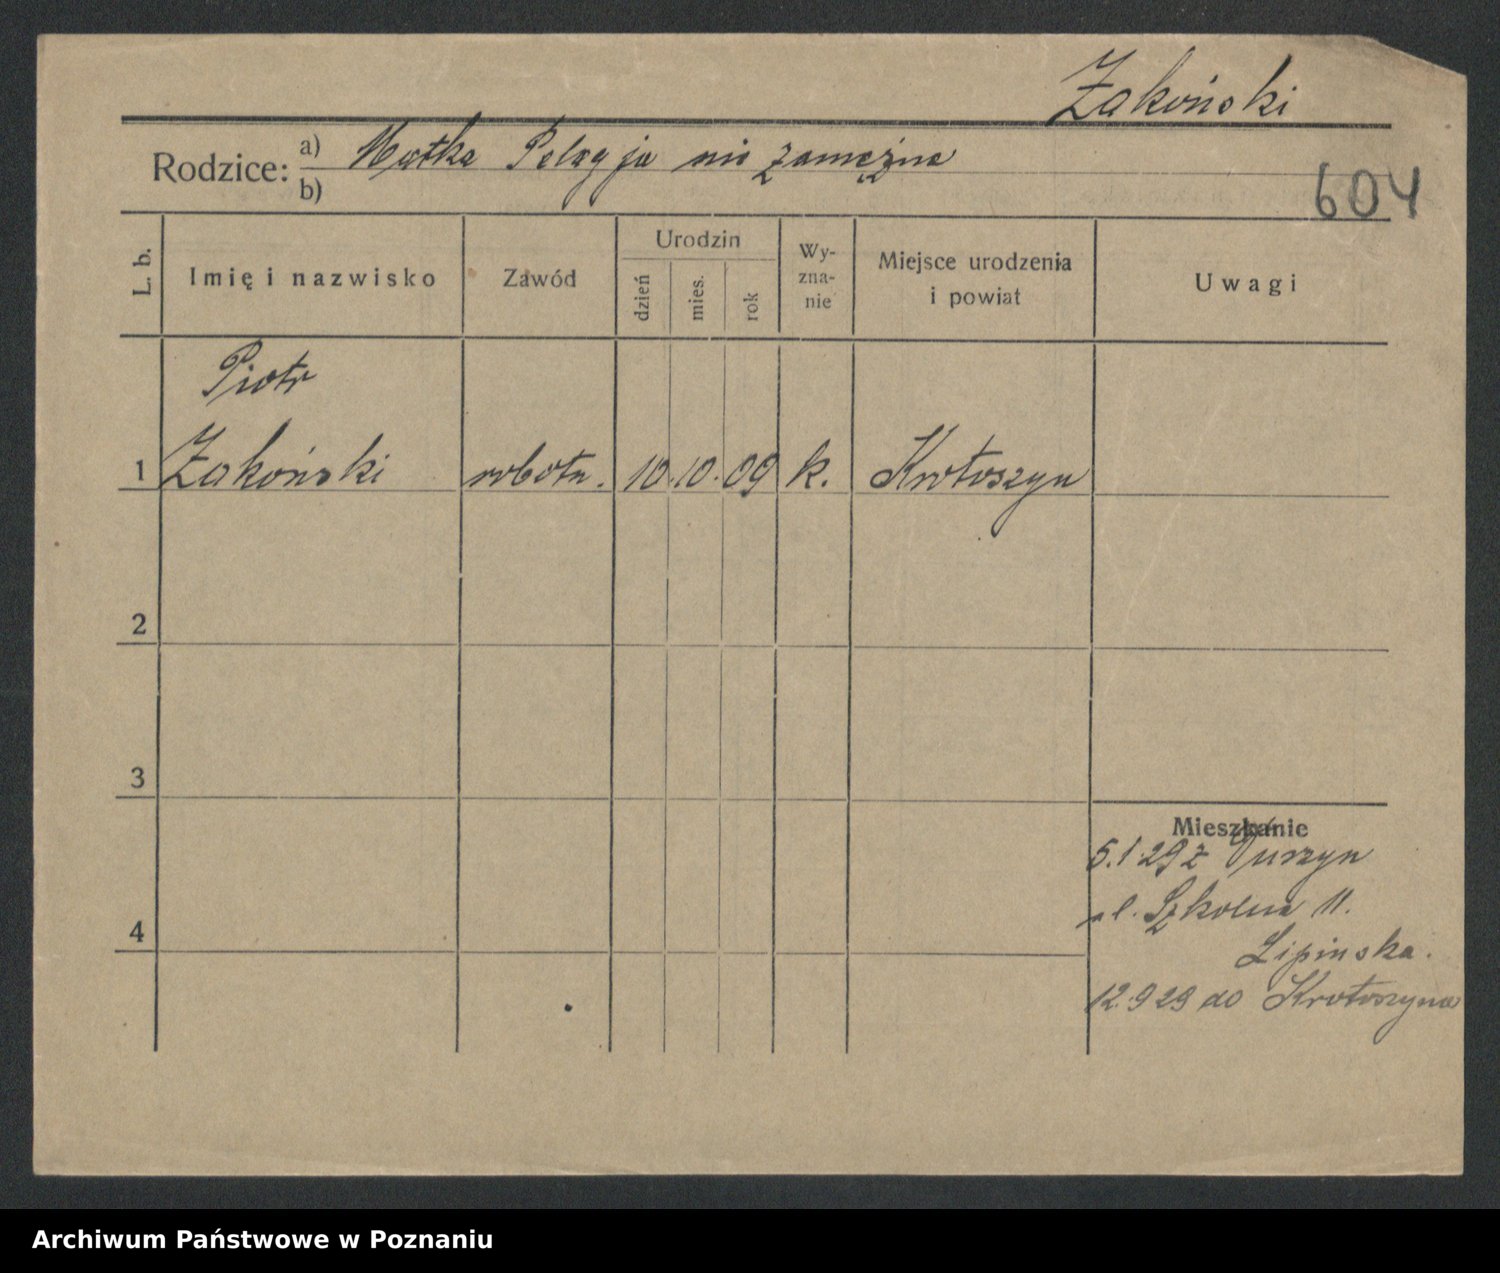 Żakoński
Rodzice: a) Matka Pelagja nie zamężna
b)
604
L. b.
Imię i nazwisko
Zawód
Urodzin
dzień
mies.
rok
Wy-
zna-
nie
Miejsce urodzenia
i powiat
Uwagi
Piotr
1 Żakoński robotn. 10. 10. 09 k. Krotoszyn
2
3
Mieszkanie
5.1.29 z
ul. Szkolna 11.
4
Lipinska.
12.9 29 do Krotoszyna
Archiwum Państwowe w Poznaniu